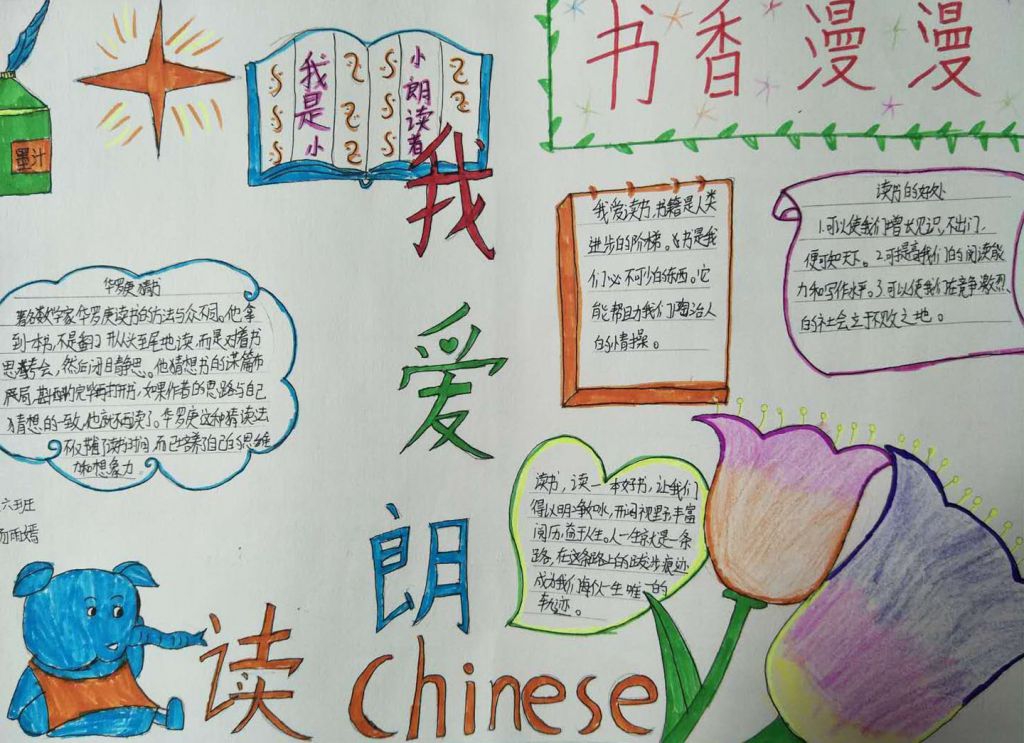 书香漫漫
墨汁
我是小
小朗读者
我爱朗
读 Chinese
华罗庚猜书
著名数学家华罗庚读书的方法与众不同。他拿
到一本书,不是翻开从头至尾地读,而是对着书
思考一会,然后闭目静思。他猜想书的谋篇布
局,斟酌完毕再打开书,如果作者的思路与自己
猜想的一致,他就不再读了。华罗庚这种猜读法
不仅节省了读书时间,而且培养了自己的思维
力和想象力
六班
雨嫣
我爱读书,书籍是人类
进步的阶梯。书是我
们必不可少的东西。它
能帮助我们陶冶人
的情操。
读书的好处
1.可以使我们增长见识,不出门,
便可知天下。2.可提高我们的阅读能
力和写作水平。3.可以使我们在竞争激烈
的社会立于不败之地。
读书,读一本好书,让我们
得以明净如水,开阔视野,丰富
阅历,益于人生。人一生就是一条
路,在这条路上的跋涉痕迹
成为我们每个一生唯一的
轨迹。